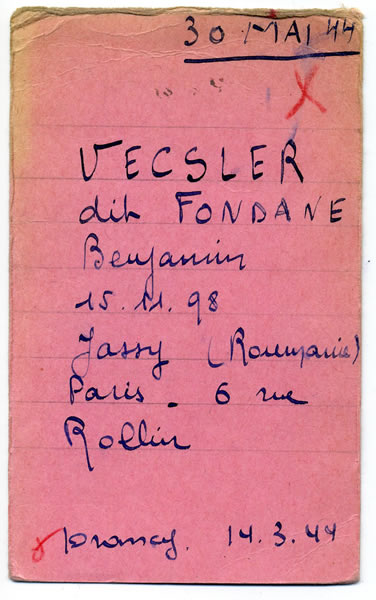 30 MAI 44
VECSLER
dit FONDANE
Benjamin
15.11.98
Jassy (Roumanie)
Paris - 6 rue
Rollin
Drancy. 14.3.44